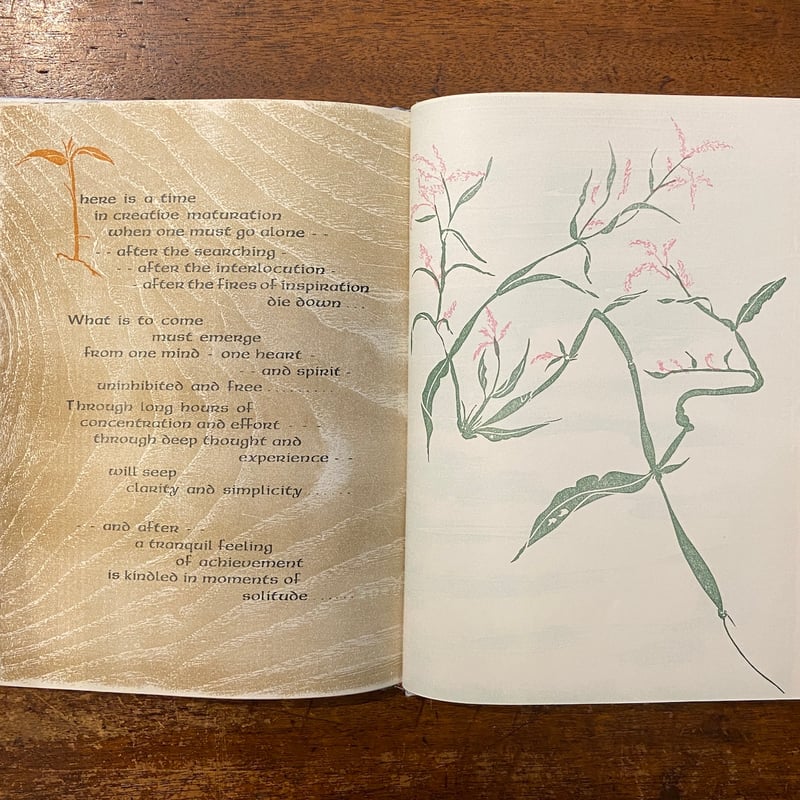 There is a time
in creative maturation
when one must go alone - -
- - after the searching -
- - after the interlocution -
- after the fires of inspiration
die down ...
What is to come
must emerge
from one mind - one heart -
- and spirit -
uninhibited and free .........
Through long hours of
concentration and effort - - -
through deep thought and
experience - -
will seep
clarity and simplicity ......
- - and after - -
a tranquil feeling
of achievement
is kindled in moments of
solitude ......